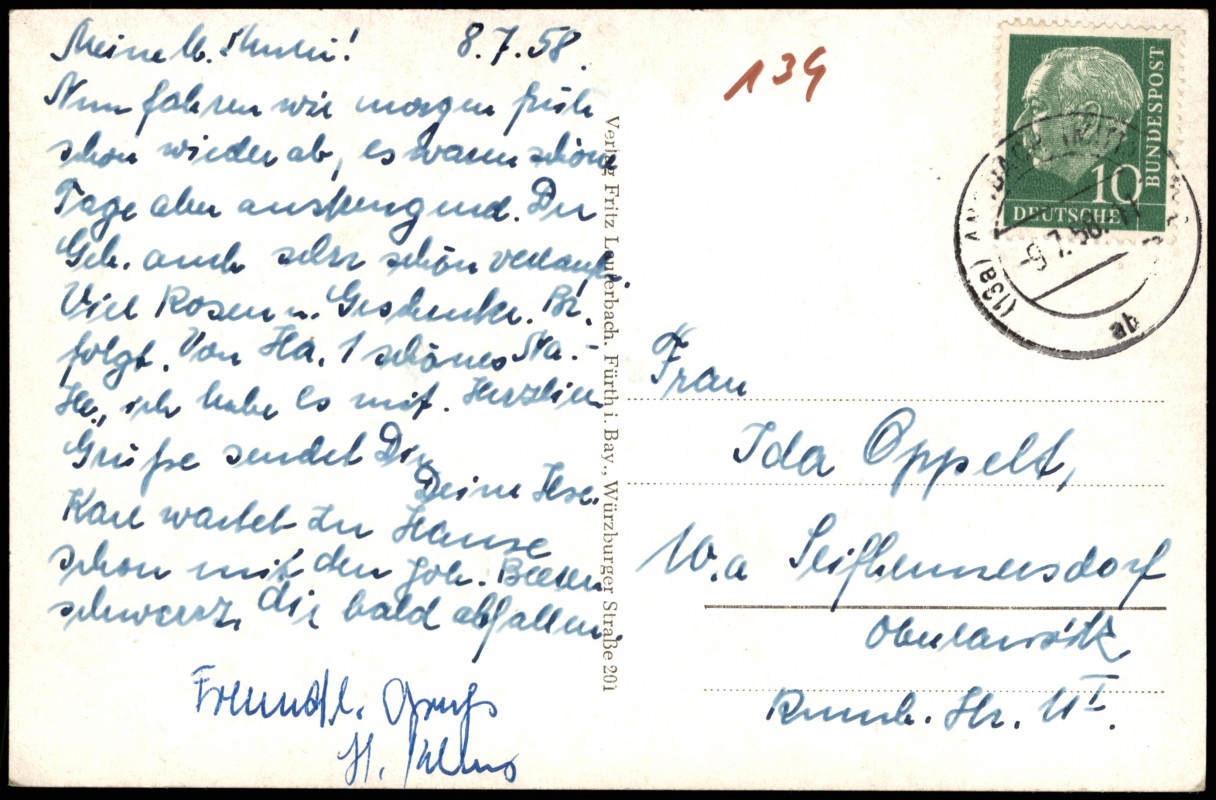 Meine lb. Mutti! 8.7.58.
Nun fahren wir morgen früh
schon wieder ab, es waren schöne
Tage aber anstrengend. Der
Geb. auch sehr schön verlaufen.
Viel Rosen u. Geschenke. Br.
folgt. Von Ha. 1 schönes Na.-
He., ich habe es mit. Herzlichen
Grüße sendet Dir
Deine Ilse.
Karl wartet zu Hause
schon mit den Joh. Beeren
schwarz, die bald abfallen.
Freundl. Gruß
H.
Verlag Fritz Lauterbach, Fürth i. Bay., Würzburger Straße 201
139
DEUTSCHE
BUNDESPOST
10
(13a) ANSBACH
-9.7.58.-17
ab
Frau
Ida Oppelt,
10.a Seifhennersdorf
Oberlausitz
Rumb. Str.